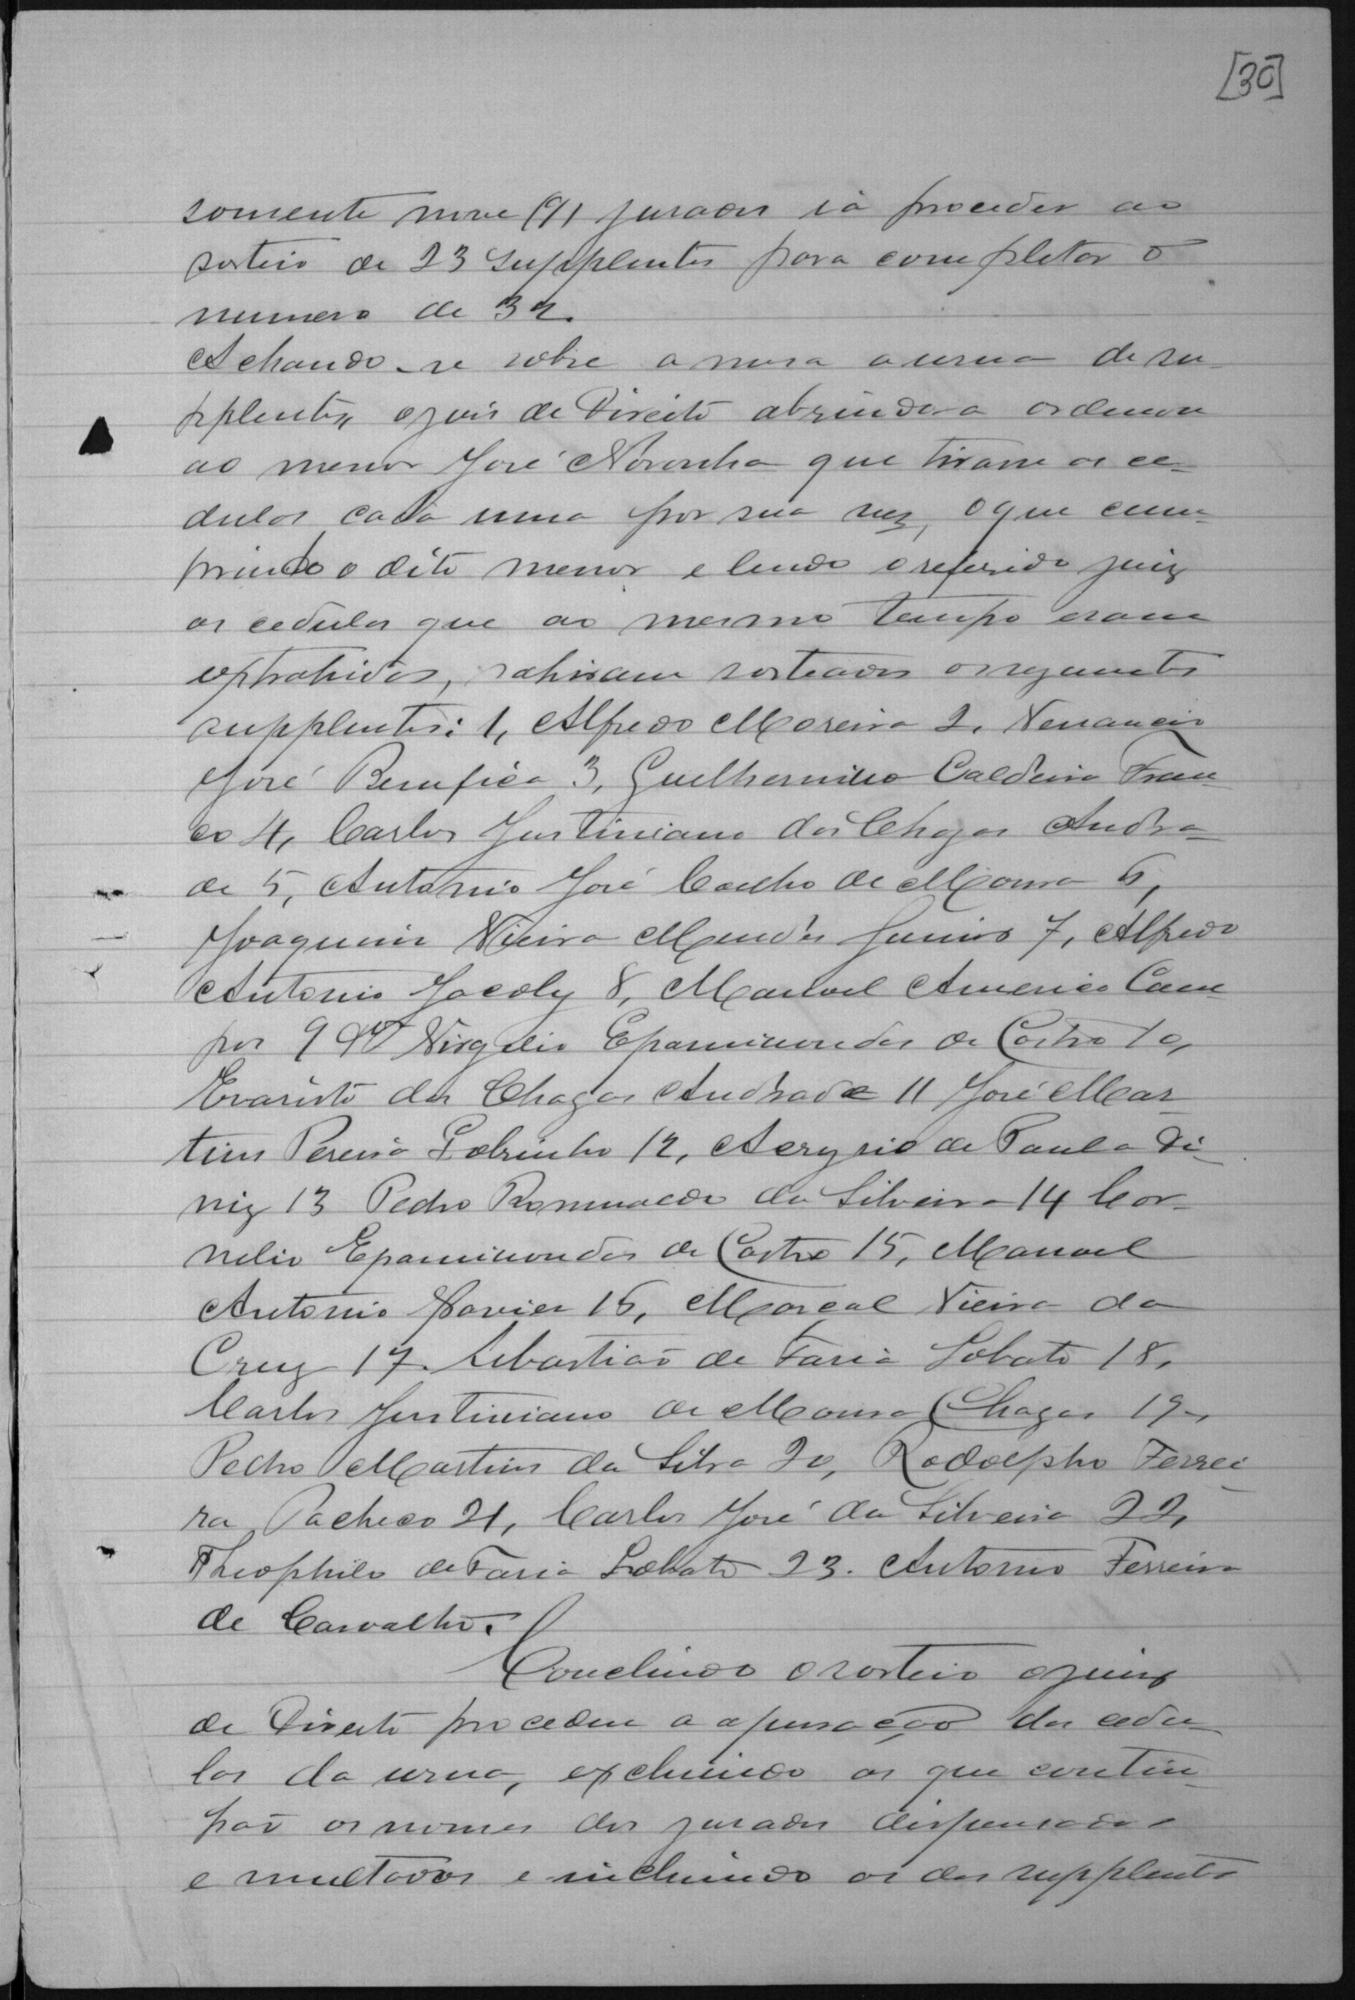 [30]
somente nove (9) jurados ia proceder ao
sorteio de 23 supplentes para completar o
numero de 32.
Achando-se sobre a mesa a urna de su-
pplentes, o juis de Direito abrindo-a ordenou
ao menor José Noronha que tirasse as ce-
dulas cada uma por sua vez, o que cum-
prindo o dito menor e lendo o referido juiz
as cedulas que ao mesmo tempo eram
extrahidas, sahiram sorteados os seguintes
supplentes: 1, Alfredo Moreira 2, Venancio
José Bemfica 3, Guilhermino Caldeira Fran-
co 4, Carlos Justiniano das Chagas Andra-
de 5, Antonio José Coelho de Moura 6,
Joaquim Vieira Mendes Junior 7, Alfredo
Antonio Jacoby 8, Manoel Americo Cam-
pos 9 Virgilio Epaminondas de Castro 10,
Evaristo das Chagas Andrade 11 José Mar-
tins Pereira Sobrinho 12, Acrysio de Paula Di-
niz 13 Pedro Romualdo da Silveira 14 Cor-
nelio Epaminondas de Castro 15, Manoel
Antonio Xavier 16, Marçal Vieira da
Cruz 17. Sebastião de Faria Lobato 18,
Carlos Justiniano de Moura Chagas 19,
Pedro Martins da Silva 20, Rodolpho Ferrei-
ra Pacheco 21, Carlos José da Silveira 22,
Theophilo de Faria Lobato 23. Antonio Ferreira
de Carvalho.
Concluido o sorteio o juiz
de Direito procedeu a apuração das cedu-
las da urna, excluindo as que contin-
hão os nomes dos jurados dispensados
e multados e incluindo os dos supplentes